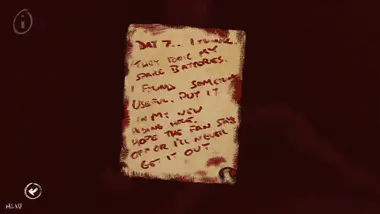 DAY 7.. I THINK.
THEY TOOK MY
SPARE BATTERIES.
I FOUND SOMETHING
USEFUL. PUT IT
IN MY NEW
HIDING HOLE.
HOPE THE FAN STAYS
OFF OR I'LL NEVER
GET IT OUT
MENU